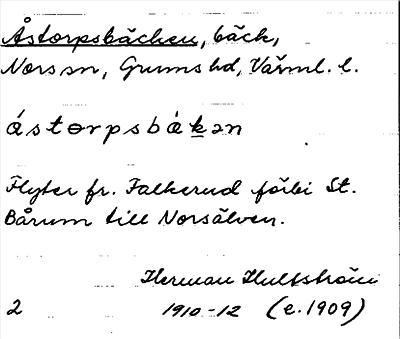 Åstorpsbäcken, bäck,
Nors sn, Grums hd, Värml. l.
åstorpsbäkən
Flyter fr. Falkerud förbi St.
Bårum till Norsälven.
Herman Hultström
2 1910-12 (e. 1909)